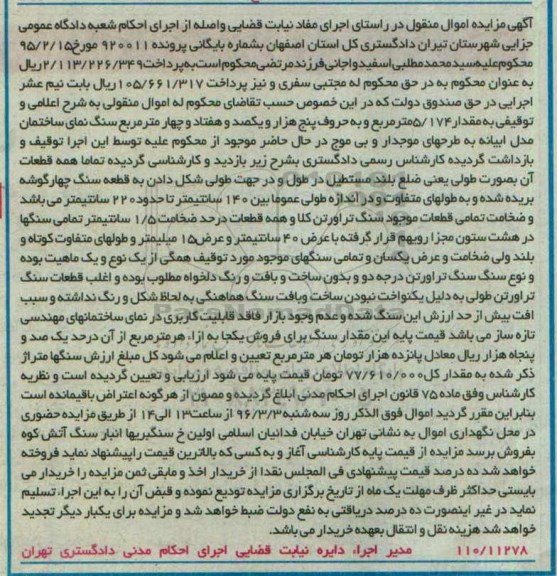 آگهی مزایده اموال منقول در راستای اجرای مفاد نیابت قضایی واصله از اجرای احکام شعبه دادگاه عمومی
جزایی شهرستان تیران دادگستری کل استان اصفهان بشماره بایگانی پرونده ۹۲۰۰۱۱ مورخ ۹۵/۲/۱۵
محکوم علیه سید محمد مطلبی اسفیدواجانی فرزند مرتضی محکوم است به پرداخت ۲/۱۱۳/۲۲۶/۳۴۹ ریال
به عنوان محکوم به در حق محکوم له مجتبی سفری و نیز پرداخت ۱۰۵/۶۶۱/۳۱۷ ریال بابت نیم عشر
اجرایی در حق صندوق دولت که در این خصوص حسب تقاضای محکوم له اموال منقولی به شرح اعلامی و
توقیفی به مقدار ۵/۱۷۴ مترمربع و به حروف پنج هزار و یکصد و هفتاد و چهار مترمربع سنگ نمای ساختمان
مدل ابیانه به طرحهای موجدار و بی موج در حال حاضر موجود از محکوم علیه توسط این اجرا توقیف و
بازداشت گردیده کارشناس رسمی دادگستری بشرح زیر بازدید و کارشناسی گردیده تماما همه قطعات
آن بصورت طولی یعنی ضلع بلند مستطیل در طول و در جهت طولی شکل دادن به قطعه سنگ چهارگوشه
بریده شده و به طولهای متفاوت و در اندازه طولی عموما بین ۱۴۰ سانتیمتر تا حدود ۲۲۰ سانتیمتر می باشد
و ضخامت تمامی قطعات موجود سنگ تراورتن کلا و همه قطعات در حد ضخامت ۱/۵ سانتیمتر تمامی سنگها
در هشت ستون مجزا رویهم قرار گرفته با عرض ۴۰ سانتیمتر و عرض ۱۵ میلیمتر و طولهای متفاوت کوتاه و
بلند ولی ضخامت و عرض یکسان و تمامی سنگهای موجود مورد توقیف همگی از یک نوع و یک ماهیت بوده
و نوع سنگ سنگ تراورتن درجه دو و بدون ساخت و بافت و رنگ دلخواه مطلوب بوده و اغلب قطعات سنگ
تراورتن طولی به دلیل یکنواخت نبودن ساخت و بافت سنگ هماهنگی به لحاظ شکل و رنگ نداشته و سبب
افت بیش از حد ارزش این سنگ شده و عدم وجود بازار فاقد قابلیت کاربری در نمای ساختمانهای مهندسی
تازه ساز می باشد قیمت پایه این مقدار سنگ برای فروش یکجا به ازاء هر مترمربع از آن در حد یک صد و
پنجاه هزار ریال معادل پانزده هزار تومان هر مترمربع تعیین و اعلام می شود کل مبلغ ارزش سنگها متراژ
ذکر شده به مقدار کل ۷۷/۶۱۰/۰۰۰ تومان قیمت پایه می شود ارزیابی و تعیین گردیده است و نظریه
کارشناس وفق ماده ۷۵ قانون اجرای احکام مدنی ابلاغ گردیده و مصون از هرگونه اعتراض باقیمانده است
بنابراین مقرر گردید اموال فوق الذکر روز سه شنبه ۹۶/۳/۳ از ساعت ۱۳ الی ۱۴ از طریق مزایده حضوری
در محل نگهداری اموال به نشانی تهران خیابان فدائیان اسلامی اولین خ سنگبریها انبار سنگ آتش کوه
بفروش برسد مزایده از قیمت پایه کارشناسی آغاز و به کسی که بالاترین قیمت را پیشنهاد نماید فروخته
خواهد شد ده درصد قیمت پیشنهادی فی المجلس نقدا از خریدار اخذ و مابقی ثمن مزایده را خریدار می
بایستی حداکثر ظرف مهلت یک ماه از تاریخ برگزاری مزایده تودیع نموده و قبض آن را به این اجراء تسلیم
نماید در غیر اینصورت ده درصد دریافتی به نفع دولت ضبط خواهد شد و مزایده برای یکبار دیگر تجدید
خواهد شد هزینه نقل و انتقال بعهده خریدار می باشد.
۱۱۰/۱۱۲۷۸ مدیر اجراء دایره نیابت قضایی اجرای احکام مدنی دادگستری تهران